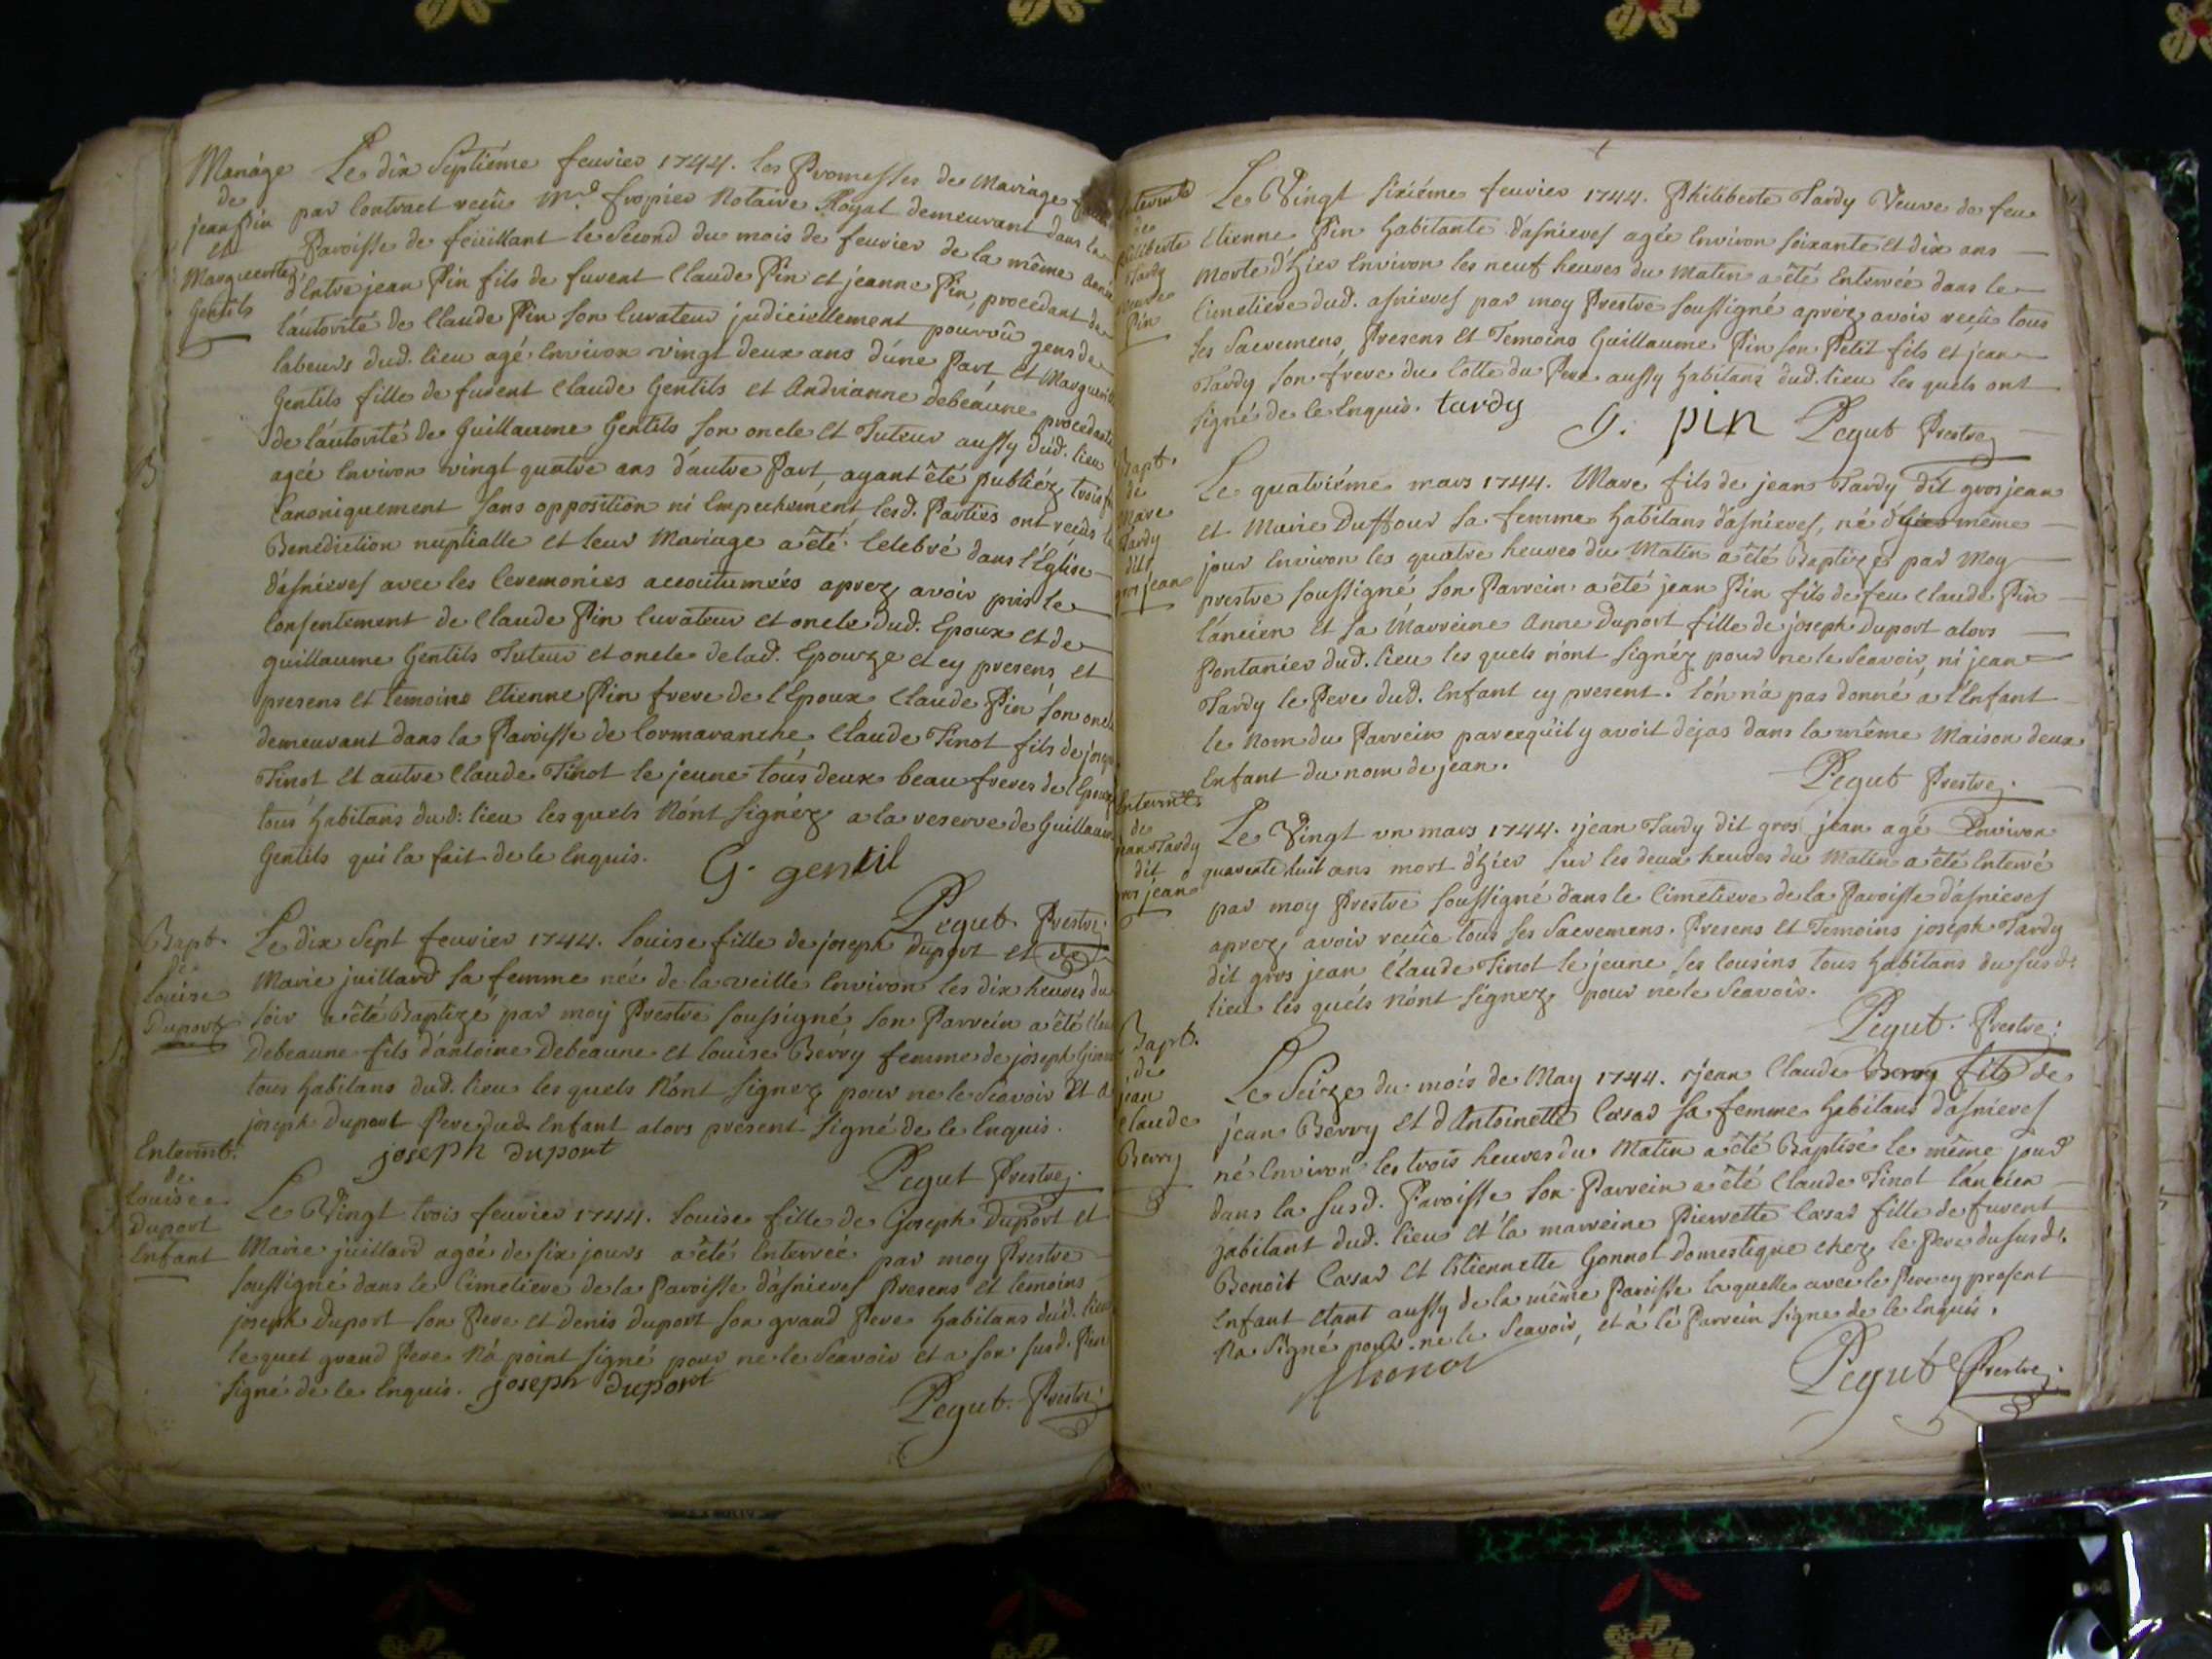 Mariage
de
jean Pin
et
Marguerite
Gentils
Le dix Septiéme feuvier 1744. les Promesses de Mariage
par Contract recû Mre. fropier Notaire Royal demeurant dans la
Paroisse de feüillant le Second du mois de feuvier de la même année
d'Entre jean Pin fils de furent Claude Pin et jeanne Pin, procedant de
l'autorité de Claude Pin son Curateur judiciellement pourvû gens de
labeurs dud. lieu agé Environ vingt deux ans d'une Part, et Marguerite
Gentils fille de furent Claude Gentils et Andrianne Debeaune procedante
de l'autorité de Guillaume Gentils son oncle et Tuteur aussy dud. lieu
ageé Environ vingt quatre ans d'autre Part, ayant été publiéz trois f
Canoniquement sans opposition ni Empechement, lesd. Parties ont recûs la
Benediction nuptialle et leur Mariage a été Celebré dans l'Eglise
d'asnieres avec les Ceremonies accoutumées aprez avoir pris le
Consentement de Claude Pin Curateur et oncle dud. Epoux et de
guillaume Gentils Tuteur et oncle de lad. Epouze et cy presens et
presens et temoins Etienne Pin frere de l'Epoux Claude Pin son oncle
demeurant dans la Paroisse de Cormaranche Claude Tinot fils de joseph
Tinot et autre Claude Tinot le jeune tous deux beau freres de l'Epouze
tous habitans dud: lieu les quels N'ont signéz a la reserve de Guillaume
Gentils qui la fait de le Enquis. G. gentil
Pegut Prestre.
Bapt.
de
Louise
Duport
Le dix Sept feuvier 1744. Louise fille de joseph Duport et de
Marie juillard sa femme née de la veille Environ les dix heures du
soir a été Baptizé par moy Prestre soussigné, son Parrein a été
Debeaune fils d'antoine Debeaune et Louise Berry femme de joseph
tous habitans dud. lieu les quels N'ont signez pour ne le Scavoir et a
joseph Duport Pere dud. Enfant alors present signé de le Enquis.
joseph duport
Pegut Prestre.
Enterrmt.
de
Louise
Duport
Enfant
Le Vingt trois feuvier 1744. Louise fille de joseph Duport et
Marie juillard ageé de six jours a été Enterreé par moy Prestre
soussigné dans le Cimetiere de la Paroisse d'asnieres Presens et temoins
joseph Duport son Pere et Denis Duport son grand Pere habitans dud. lieu
le quel grand Pere N'a point signé pour ne le Scavoir et a son susd. Pere
signé de le Enquis. joseph duport
Pegut. Prestre.
Enterrmt
de
Philiberte
Tardy
veuve
Pin
Le Vingt sixiéme feuvier 1744. Philiberte Tardy Veuve de feu
Etienne Pin habitante d'asnieres agée Environ soixante et dix ans
Morte d'hier Environ les neuf heures du Matin a été Enterrée dans le
Cimetiere dud. asnieres par moy Prestre soussigné apréz avoir reçû tous
ses Sacremens, Presens et Temoins Guillaume Pin son Petit fils et jean
Tardy son frere du Cotte du Pere aussy habitans dud. lieu les quels ont
signés de le Enquis. tardy G. pin Pegut Prestre
Bapt.
de
Marc
Tardy
dit
gros jean
Le quatriéme mars 1744. Marc fils de jean Tardy dit gros jean
et Marie Duffour sa femme habitans d'asnieres, né d'hier même
jour Environ les quatre heures du Matin a été Baptizé par Moy
prestre soussigné son Parrein a été jean Pin fils de feu Claude Pin
l'ancien et sa Marreine Anne Duport fille de joseph Duport alors
Pontanier dud. lieu les quels n'ont signéz pour ne le Scavoir, ni jean
Tardy le Pere dud. Enfant cy present. l'on n'a pas donné a l'Enfant
le nom du Parrein parcequ'il y avoit dejas dans la même Maison deux
Enfant du nom de jean.
Pegut Prestre.
Enterrmt
de
jean Tardy
dit
gros jean
Le Vingt un mars 1744. jean Tardy dit gros jean agé Environ
quarente huit ans mort d'hier sur les deux heures du Matin a été Enterré
par moy Prestre soussigné dans le Cimetiere de la Paroisse d'asnieres
aprez avoir recûe tous ses Sacremens. Presens et Temoins joseph Tardy
dit gros jean Claude Tinot le jeune ses Cousins tous habitans du susd:
lieu les quels N'ont signez pour ne le Scavoir.
Pegut. Prestre.
Bapt.
de
jean
Claude
Berry
Le Seize du mois de May 1744. jean Claude Berry fils de
jean Berry et d'Antoinette Casar sa femme habitans d'asnieres
né Environ les trois heures du Matin a été Baptisé le même jour
dans la susd. Paroisse son Parrein a été Claude Tinot l'ancien
habitant dud. lieu et la marreine Pierrette Casar fille de furent
Benoit Casar et Etiennette Gonnot Domestique chez le Pere du susd.
Enfant etant aussy de la même Paroisse laquelle avec le Pere cy present
Na signé pour ne le Scavoir, et a le Parrein signe de le Enquis.
Pegut Prestre.